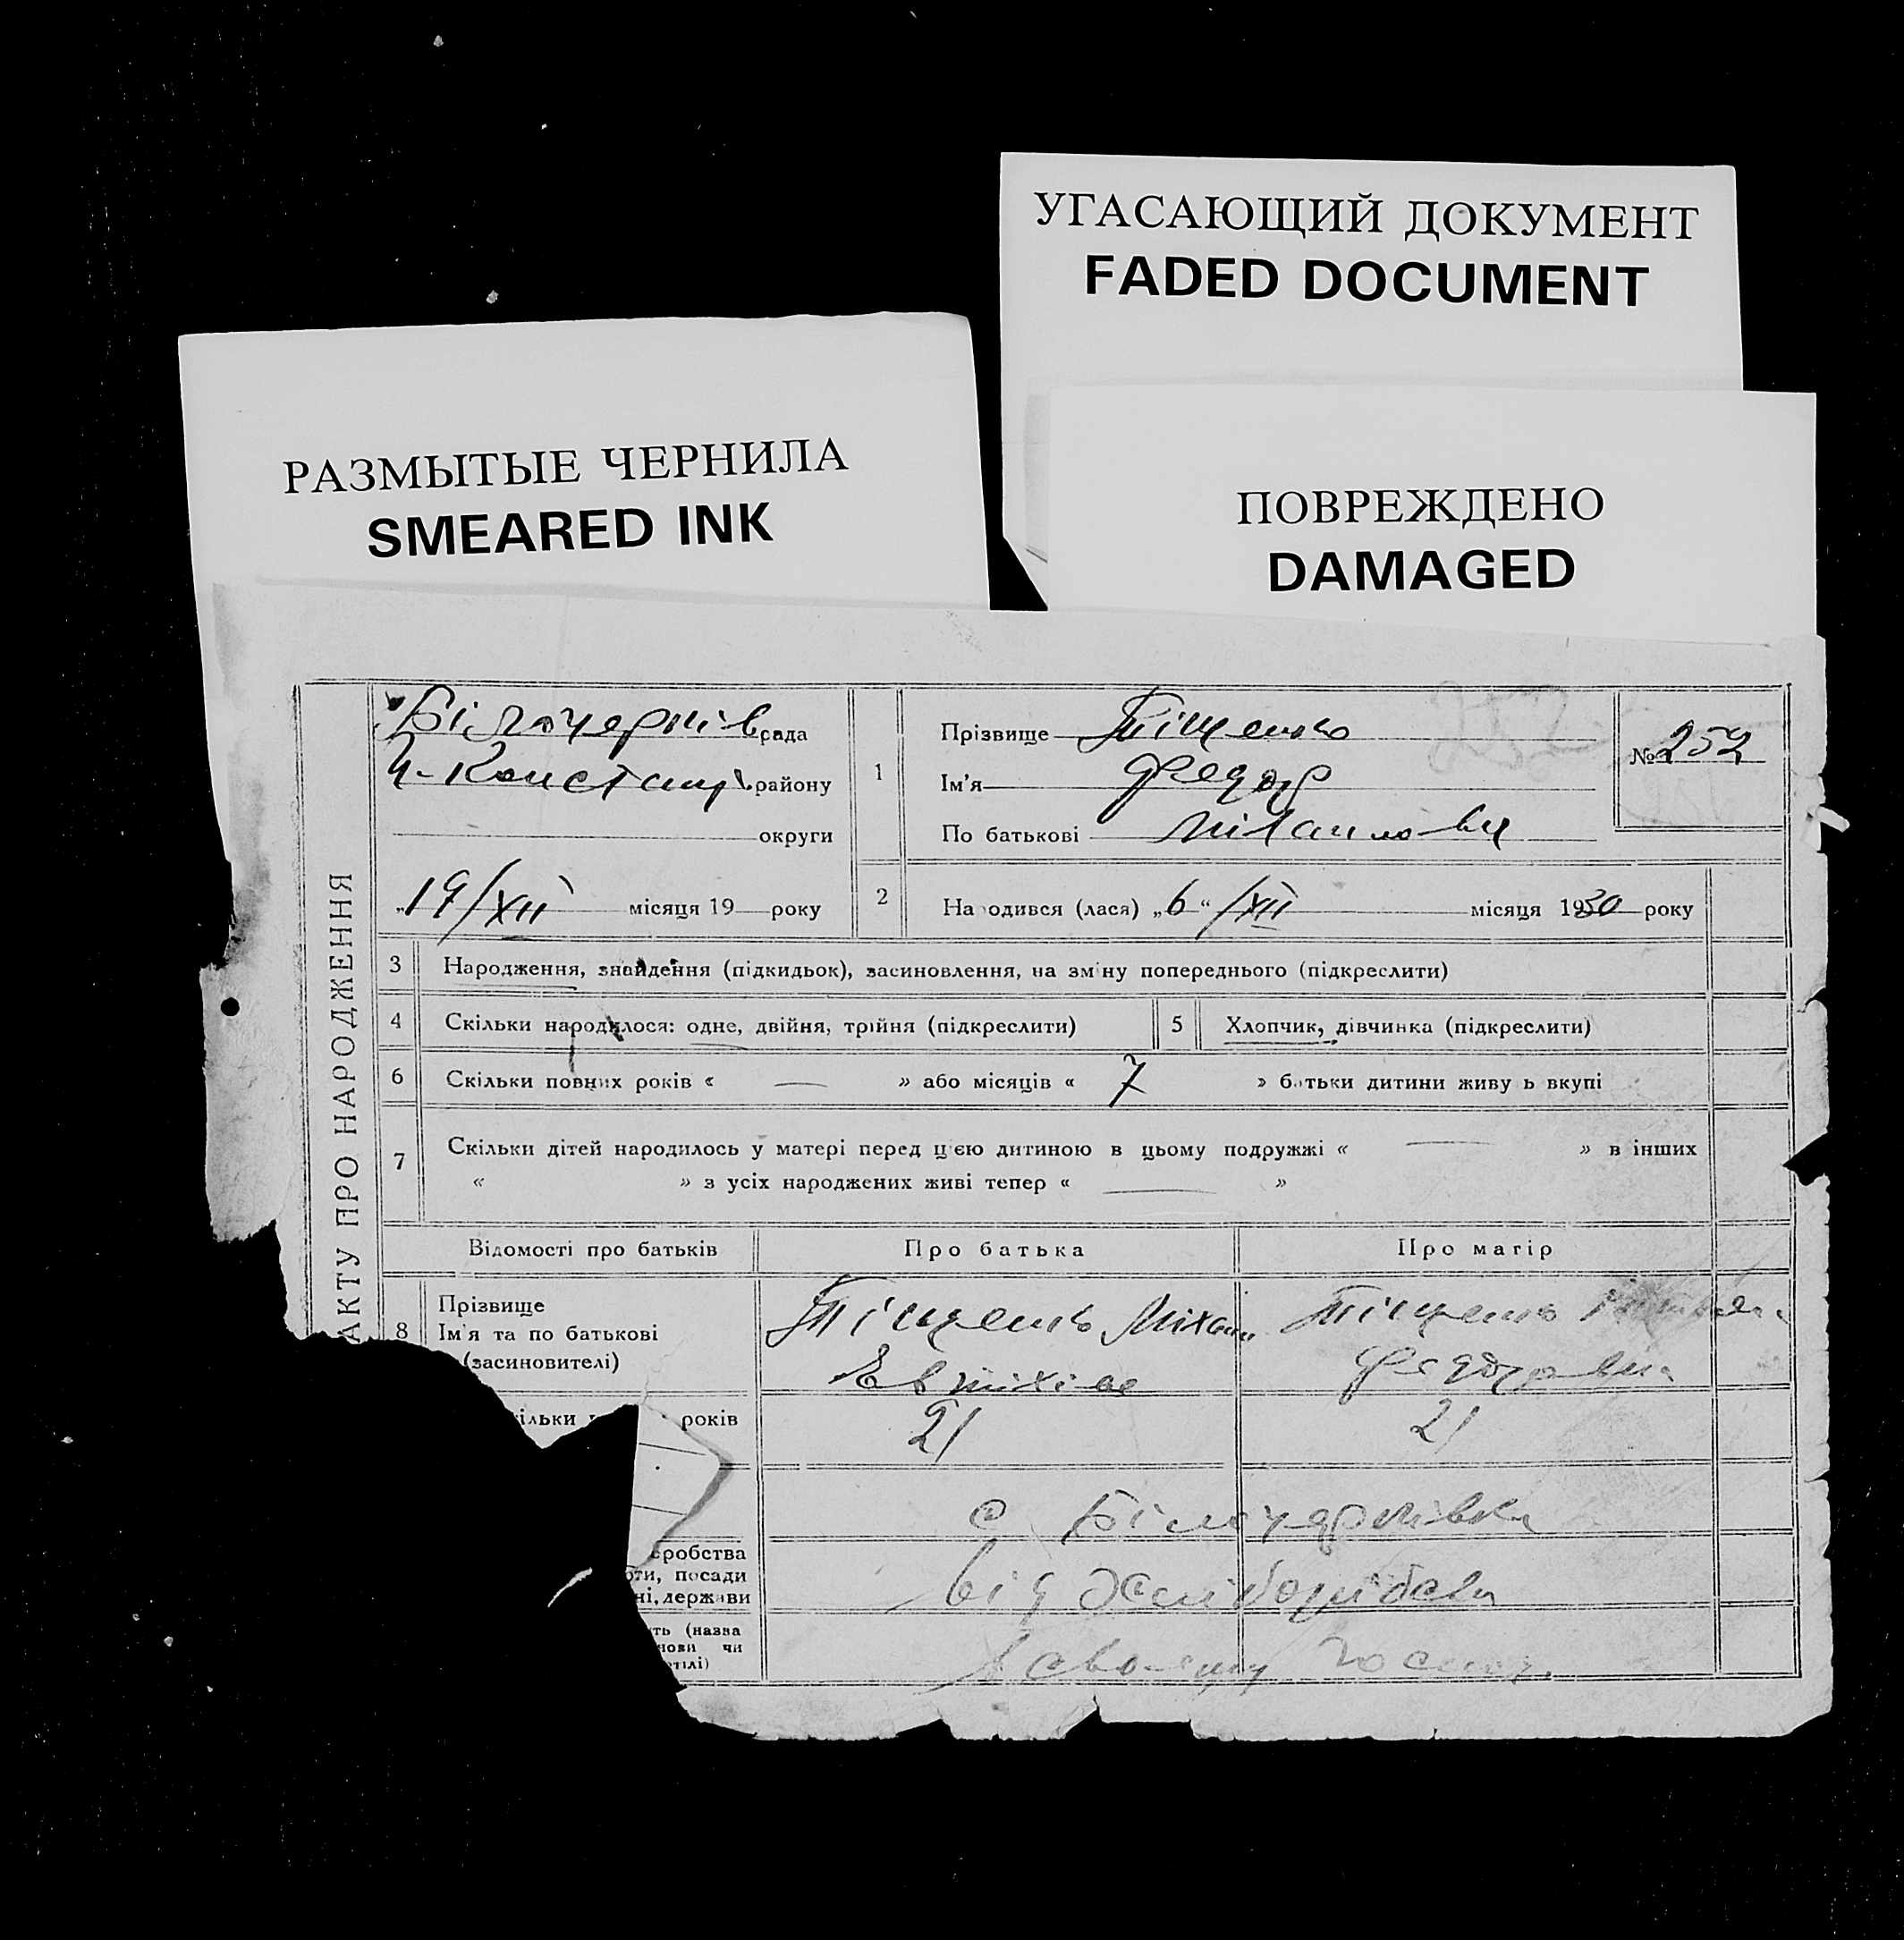 УГАСАЮЩИЙ ДОКУМЕНТ
FADED DOCUMENT
РАЗМЫТЫЕ ЧЕРНИЛА
SMEARED INK
ПОВРЕЖДЕНО
DAMAGED
АКТУ ПРО НАРОДЖЕННЯ
Білочерків рада
району
округи
„19/XII місяця 19 року
1
Прізвище Тіщенко
Ім'я Федор
По батькові Міхайлович
№ 252
2
На одився (лася) „6“ /XII місяця 1930 року
3 Народження, знайдення (підкидьок), засиновлення, на зм ну попереднього (підкреслити)
4 Скільки народилося: одне, двійня, трійня (підкреслити)
5 Хлопчик, дівчинка (підкреслити)
6 Скільки повних років « — » або місяців « 7 » батьки дитини живу ь вкупі
7 Скільки дітей народилось у матері перед цією дитиною в цьому подружжі « — » в інших
« » з усіх народжених живі тепер « — »
Відомості про батьків
Про батька
Про матір
8
Прізвище
Ім'я та по батькові
(засиновителі)
Тіщенко Міхаил
Тіщенко
Федоровна
ільки років
21
21
с Білочерківка
робства
оти, посади
ні, держави
від
ть (назва
нови чи
ртілі)
в своему господ.